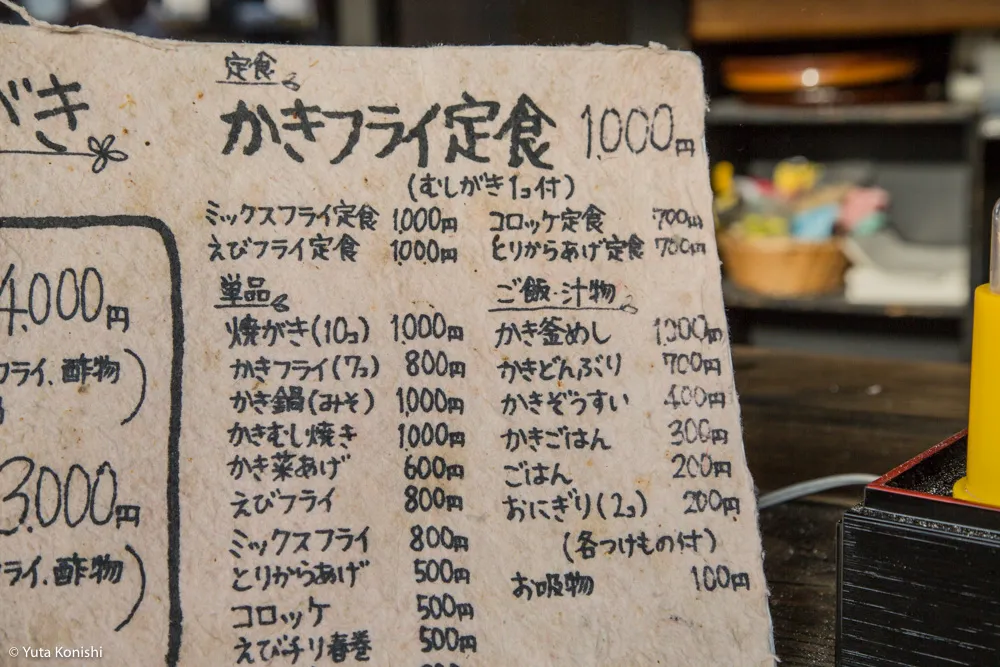 がき
4,000円
フライ、酢物
3,000円
ライ、酢物
定食
かきフライ定食 1,000円
(むしがき1コ付)
ミックスフライ定食 1,000円
えびフライ定食 1,000円
コロッケ定食 700円
とりからあげ定食 700円
単品
焼がき(10コ) 1,000円
かきフライ(7コ) 800円
かき鍋(みそ) 1,000円
かきむし焼き 1,000円
かき菜あげ 600円
えびフライ 800円
ミックスフライ 800円
とりからあげ 500円
コロッケ 500円
えびチリ春巻 500円
ご飯・汁物
かき釜めし 1,000円
かきどんぶり 700円
かきぞうすい 400円
かきごはん 300円
ごはん 200円
おにぎり(2コ) 200円
(各つけもの付)
お吸物 100円
© Yuta Konishi